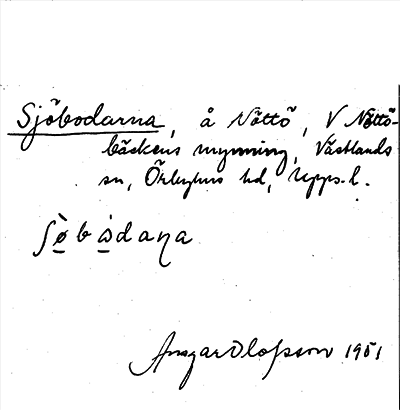 Sjöbodarna, å Nöttö, V Nöttö-
bäckens mynning, Västlands
sn, Örbyhus hd, Upps. l.
ʃø̀bȧ̀daṇa
Ansgar Olofsson 1951